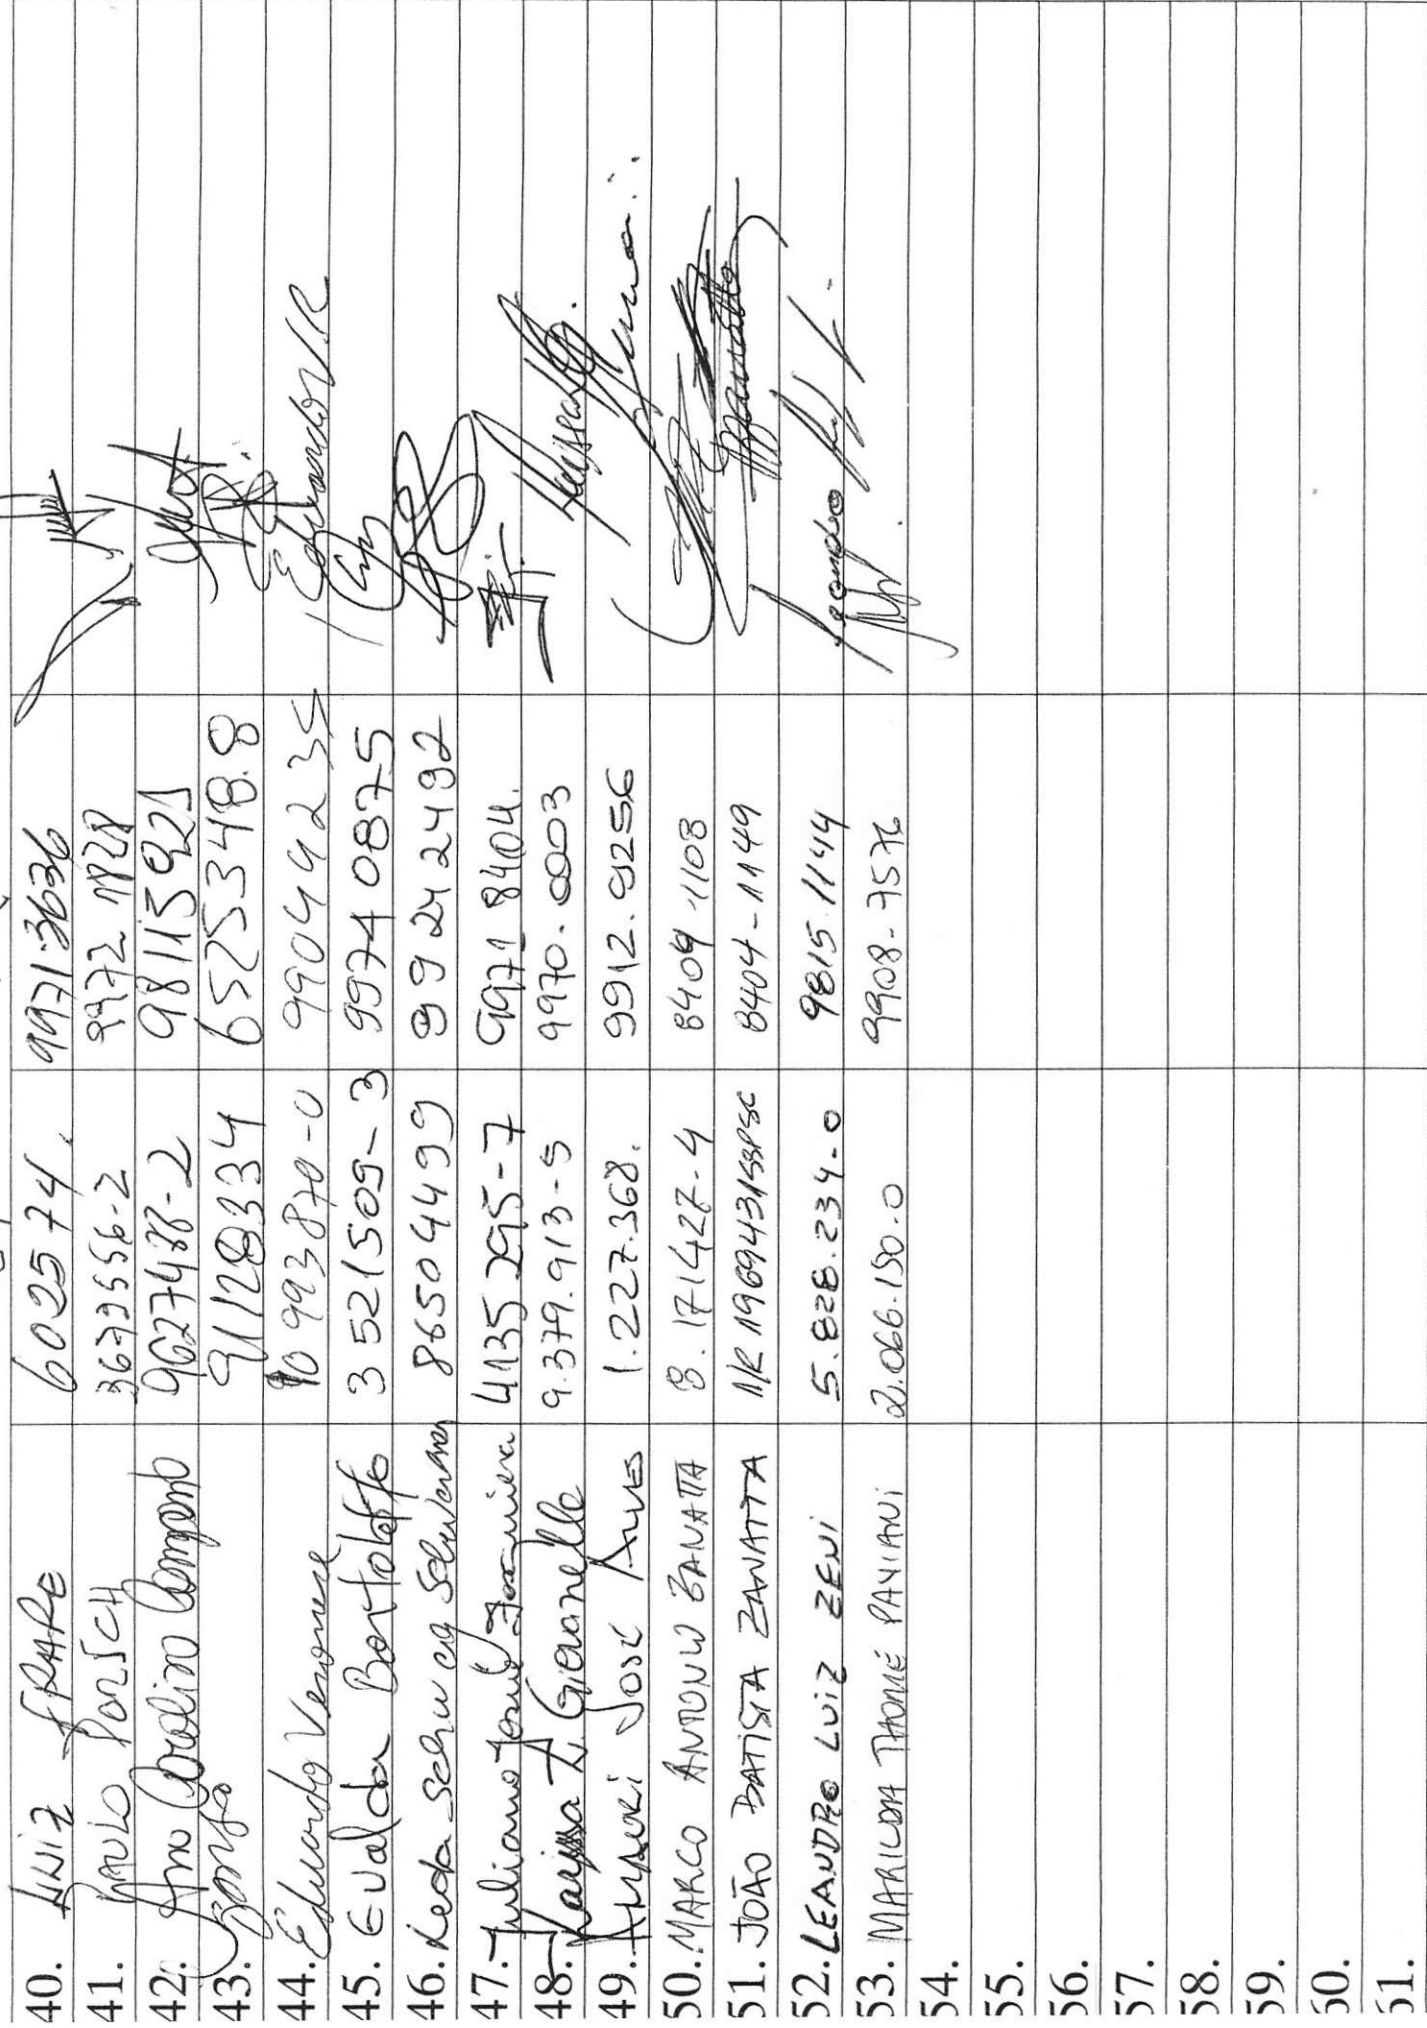 40. LUIZ FRARE 602574. 9971.3636
41. PAULO PORSCH 3672556-2 9972 1828
42. Ana Carolina Comparin 9627478-2 98113921
43. 91128334 6525348.8
44. Eduardo Veronese 10993870-0 99044235
45. Evalda Bortolotto 3521509-3 99740875
46. Leda 86504499 99242492
47. Juliano José 4135295-7 9971 8404.
48. Larissa L. Giovanella 9.379.913-5 9970.0003
49. AMAURI José ALVES 1.227.368. 9912.9256
50. MARCO ANTONIO ZANATTA 8.171427-4 8404-1108
51. JOÃO BATISTA ZANATTA 1/R 1969431SSPSC 8404-1149
52. LEANDRO LUIZ ZENI 5.828.234-0 9815.1144
53. MARILDA THOMÉ PAVIANI 2.066.150-0 9908-7576
54.
55.
56.
57.
58.
59.
60.
61.